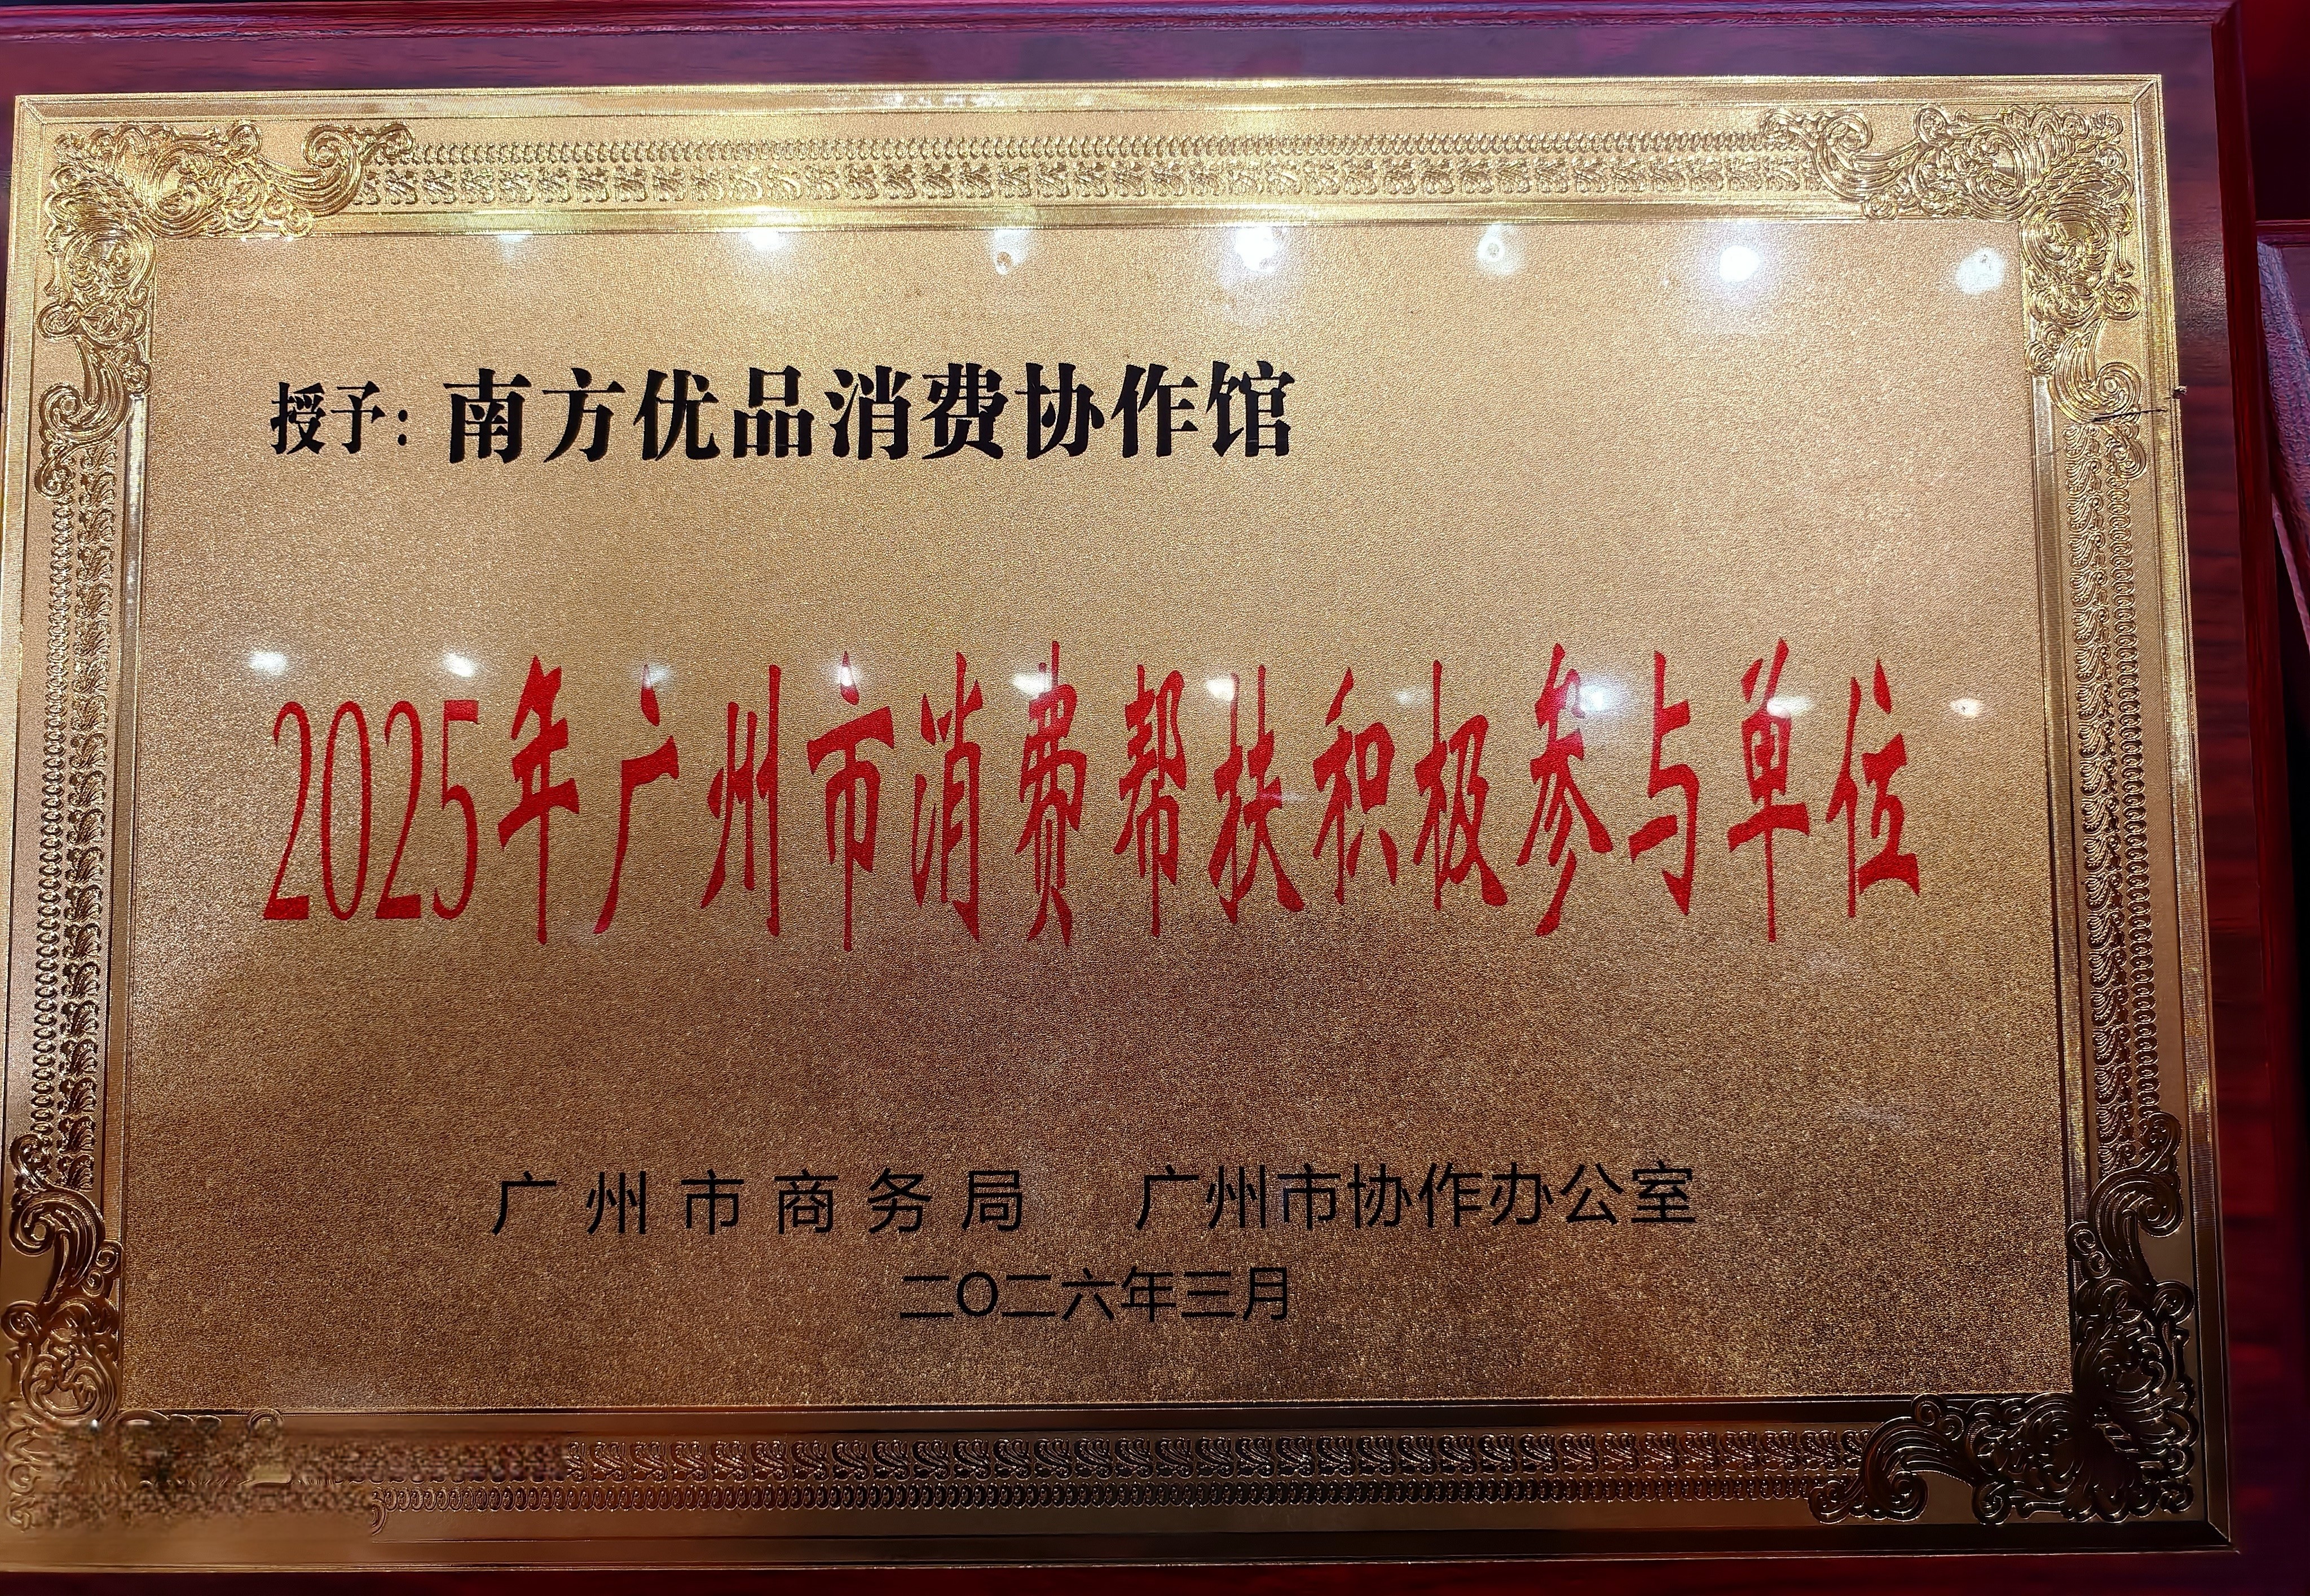 授予：南方优品消费协作馆
2025年广州市消费帮扶积极参与单位
广州市商务局 广州市协作办公室
二〇二六年三月